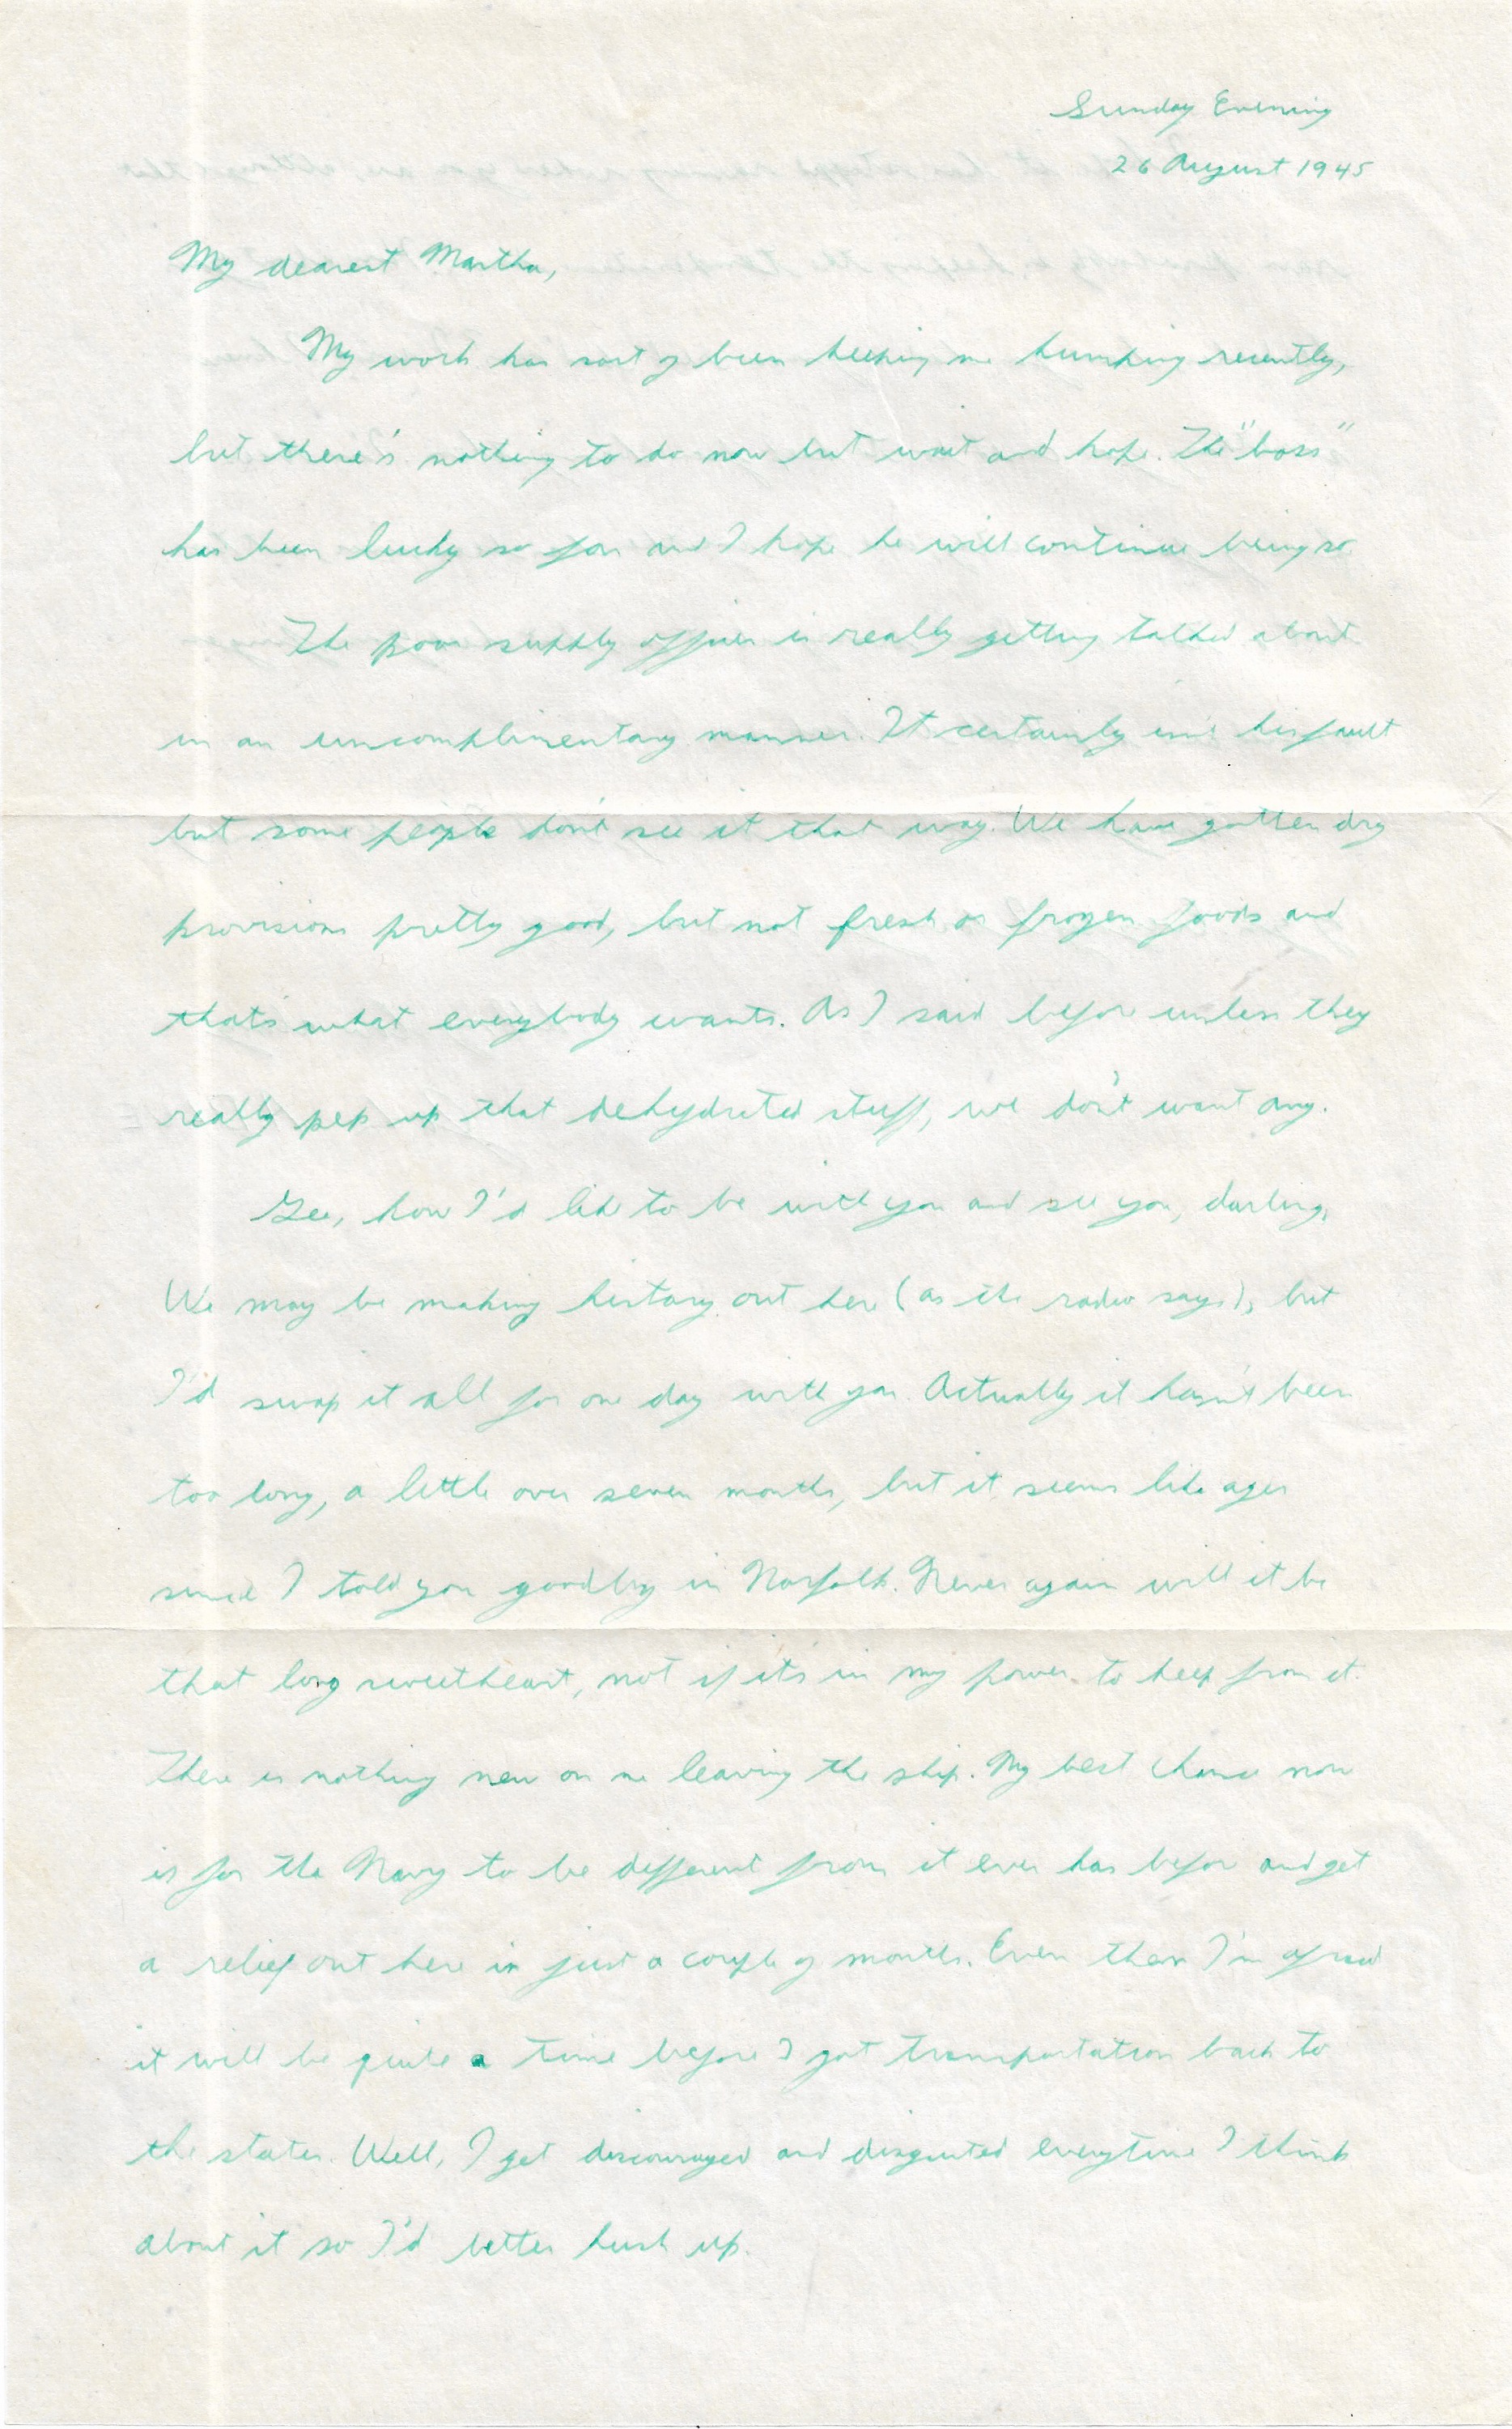 Sunday Evening
26 August 1945
My dearest Martha,
My work has sort of been keeping me humping recently,
but there's nothing to do now but wait and hope. The "boss"
has been lucky so far and I hope he will continue being so.
The poor supply officer is really getting talked about
in an uncomplimentary manner. It certainly isn't his fault
but some people don't see it that way. We have gotten dry
provisions pretty good, but not fresh or frozen foods and
that's what everybody wants. As I said before unless they
really pep up that dehydrated stuff, we don't want any.
Gee, how I'd like to be with you and see you, darling.
We may be making history out here (as the radio says), but
I'd swap it all for one day with you. Actually it hasn't been
too long, a little over seven months, but it seems like ages
since I told you goodby in Norfolk. Never again will it be
that long sweetheart, not if it's in my power to keep from it.
There is nothing new on me leaving the ship. My best chance now
is for the Navy to be different from it ever has before and get
a relief out here in just a couple of months. Even then I'm afraid
it will be quite a time before I got transportation back to
the states. Well, I get discouraged and disgusted everytime I think
about it so I'd better hush up.